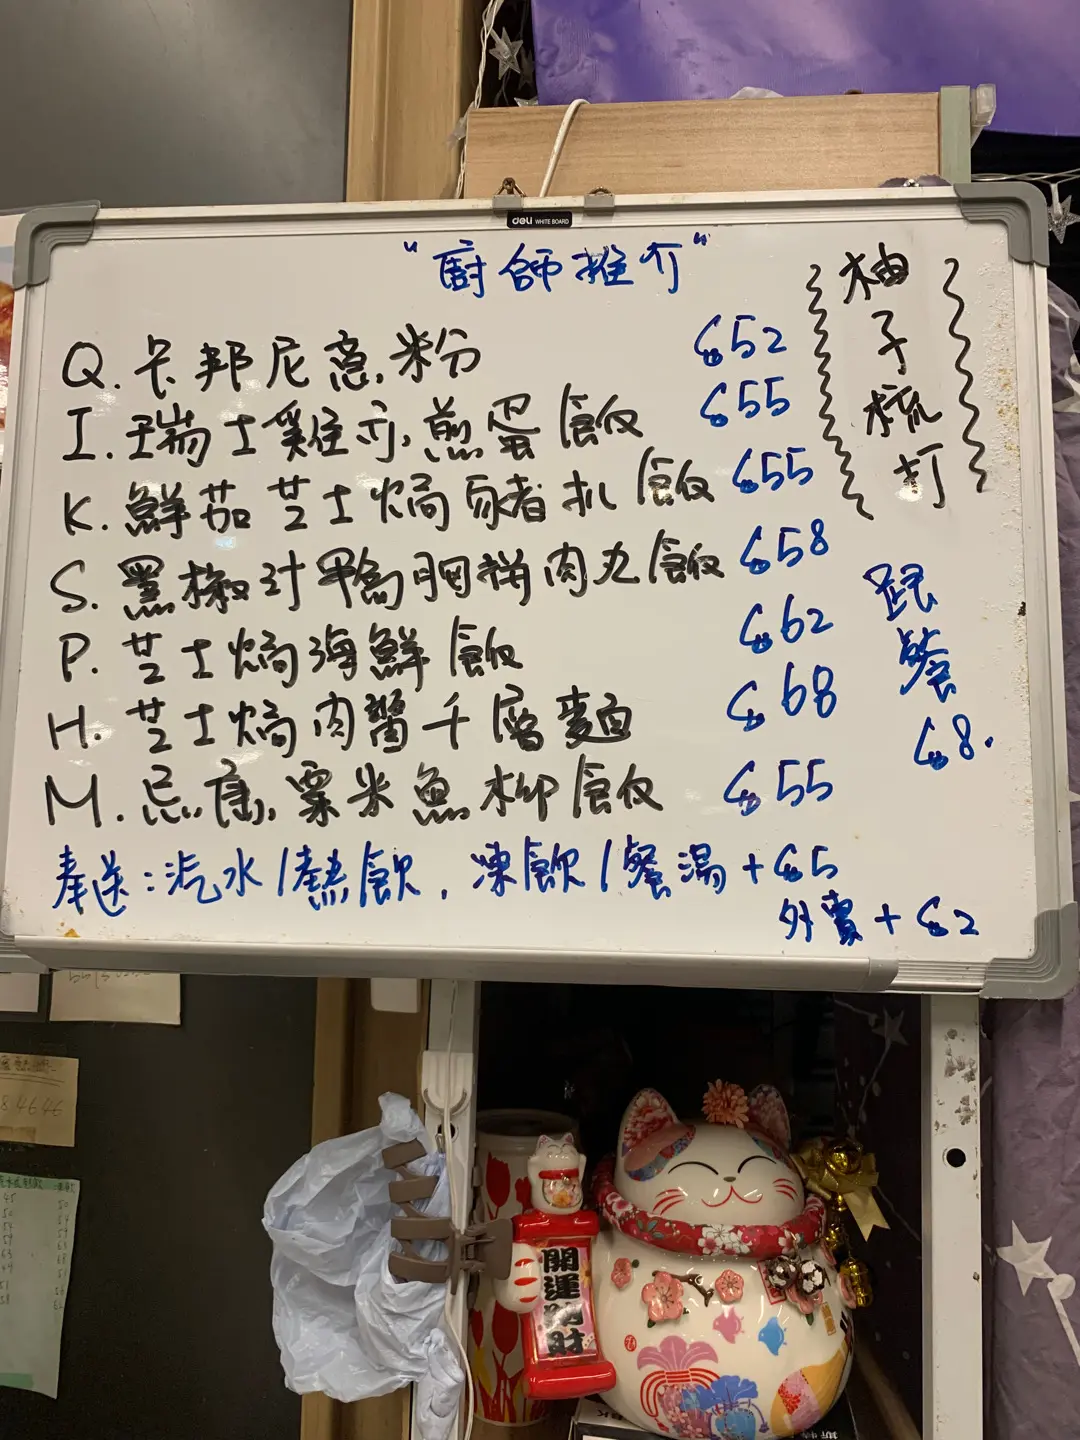 deli WHITE BOARD
"廚師推介"
Q. 卡邦尼意粉 $52
I. 瑞士雞亦煎蛋飯 $55
K. 鮮茄芝士焗豬扒飯 $55
S. 黑椒汁鴨胸拼肉丸飯 $58
P. 芝士焗海鮮飯 $62
H. 芝士焗肉醬千層麵 $68
M. 忌廉粟米魚柳飯 $55
奉送:汽水/熱飲,凍飲/餐湯+$5
外賣+$2
柚子梳打
跟餐
$8.
開運財